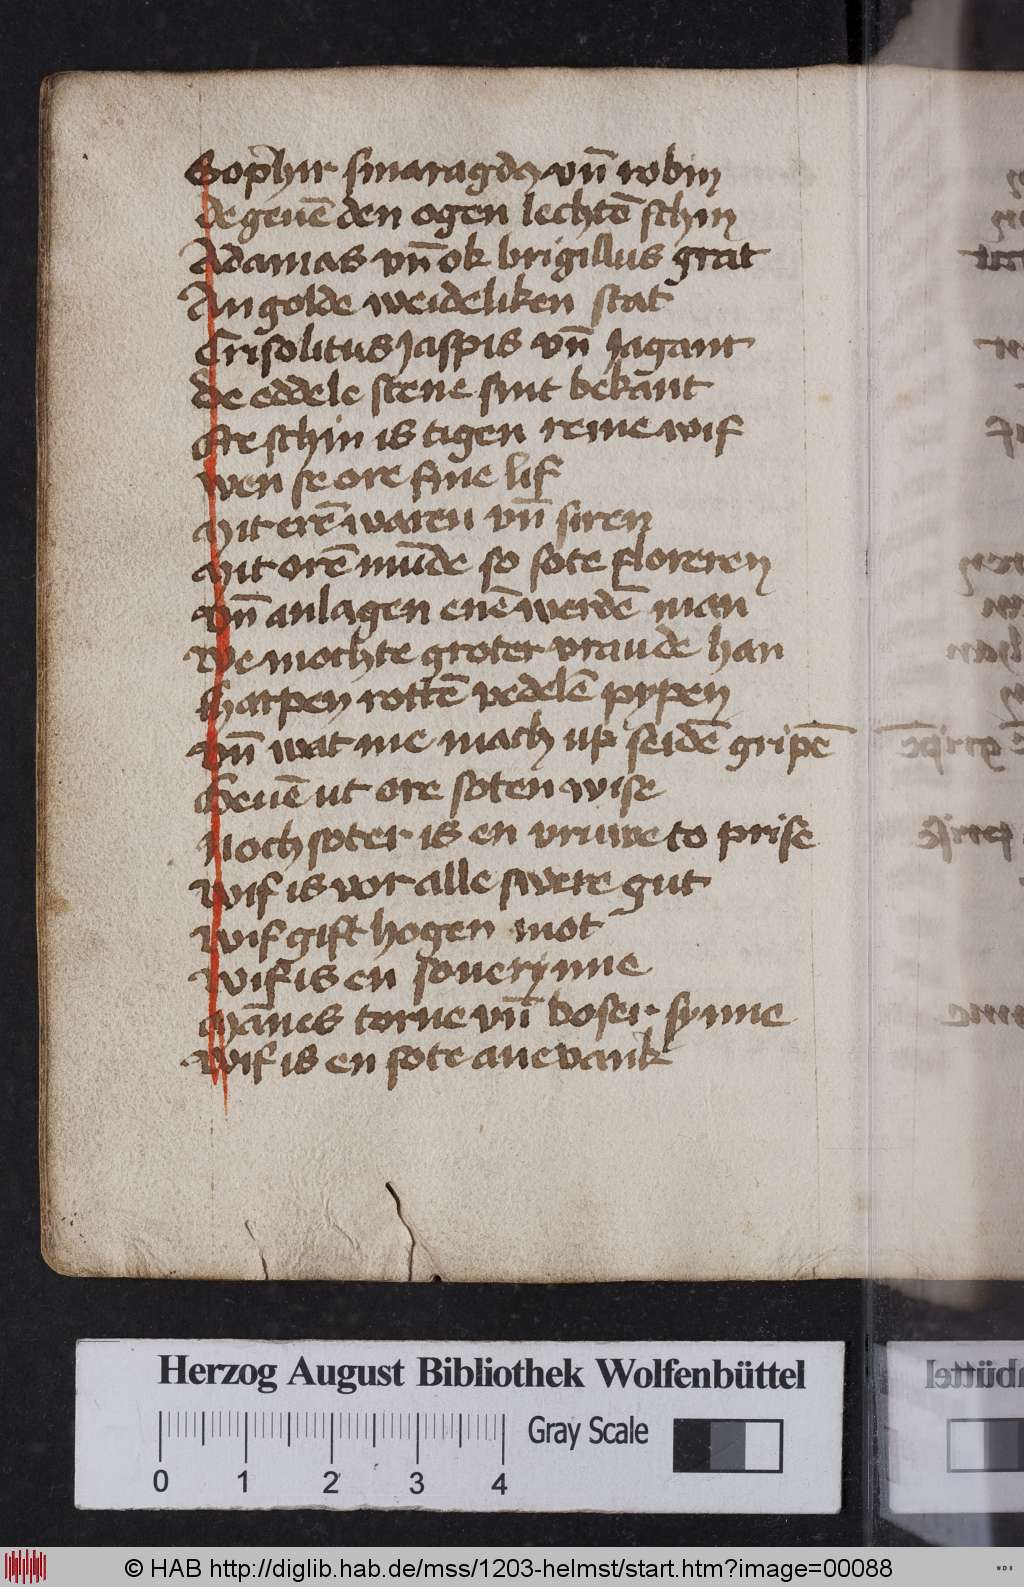 Sophir smaragdꝰ vn̄ robin
de geuē den ogen lechtē schin
Adamas vn̄ ok brigillus grat
An golde weideliken stat
Crisolitus Jaspis vn̄ Jagant
de eddele stene sint bekant
Ore schin is tigen reine wif
wen se ore fine lif
Mit erē waren vn̄ siren
Mit orē mūde so sote floreren
vn̄ anlagen enē werdē man
we mochte groter vraude han
Harpen rottē vedelē pypen
vn̄ wat me mach up seidē gripē
Geuē ut ore soten wise
Noch soter is en vruwe to prise
Wif is vor alle swere gut
Wif gift hogen mot
Wif is en souerynne
Mānes torne vn̄ boser synne
Wif is en sote anevank
Herzog August Bibliothek Wolfenbüttel
Gray Scale
0 1 2 3 4
© HAB http://diglib.hab.de/mss/1203-helmst/start.htm?image=00088